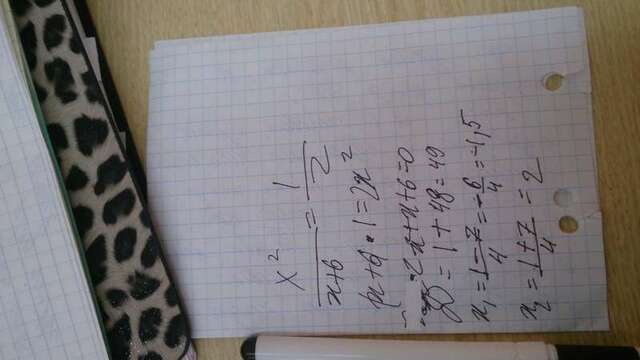 x² / x+6 = 1 / 2
(x+6) · 1 = 2x²
-2x+x+6=0
D = 1 + 48 = 49
x₁ = 1-7 / 4 = -6 / 4 = -1,5
x₂ = 1+7 / 4 = 2